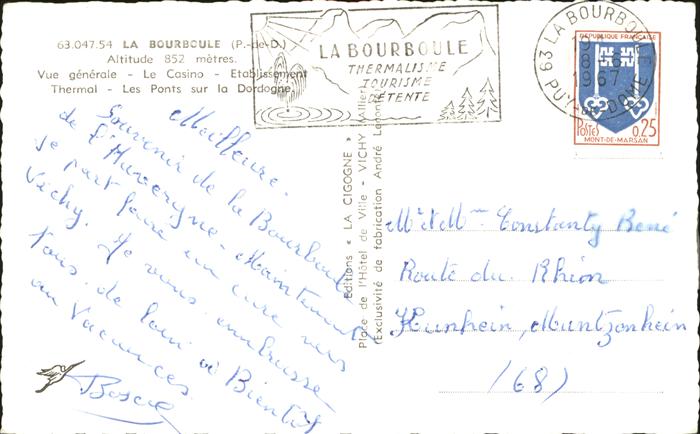 63.047.54 LA BOURBOULE (P.-de-D.)
Altitude 852 mètres.
Vue générale - Le Casino - Etablissement
Thermal - Les Ponts sur la Dordogne.
LA BOURBOULE
THERMALISME
TOURISME
DÉTENTE
63 LA BOURBOULE
8-8
1967
PUY-DE-DOME
REPUBLIQUE FRANÇAISE
POSTES 0,25
MONT-DE-MARSAN
Meilleure
Souvenir de la Bourboule
de l'Auvergne - Maintenant
je part faire un cure vers
Vichy. Je vous embrasse
tous de loin où Bientôt
au Vacances
Editions « LA CIGOGNE »
Place de l'Hôtel de Ville - VICHY (Allier)
Exclusivité de fabrication André
Mr et Mme Constanty René
Route du Rhin
Kunhein, Muntzenhein
(68)